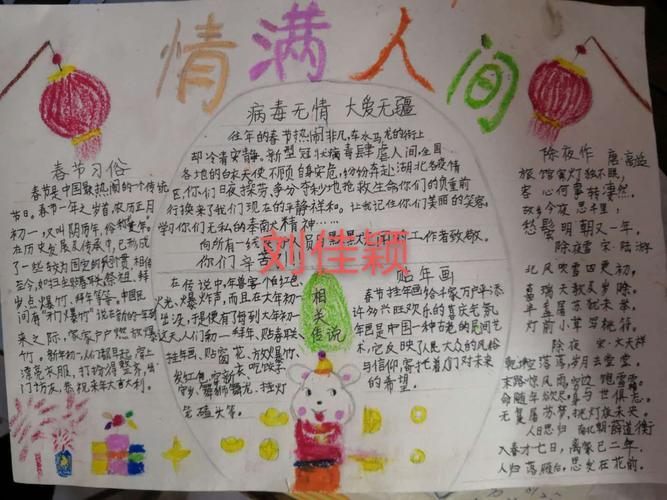 情满人间
病毒无情 大爱无疆
往年的春节热闹非凡,车水马龙的街上
却冷清安静。新型冠状病毒肆虐人间,全国
各地的白衣天使不顾自身安危,纷纷奔赴湖北各疫情
区,你们日夜操劳、争分夺秒地抢救生命你们的负重前
行换来了我们现在的平静祥和。让我记住你们美丽的笑容。
学习你们无私的奉献精神……
向所有一线
工作者致敬。
你们辛苦
刘佳颖
春节习俗
春节是中国最热闹的个传统
节日。春节一年之岁首,农历正月
初一,又叫阴历年,俗称
在历史发展及传承中,已形成
了一些较为固定的习俗,相传
至今,如扫尘
岁点爆竹、拜年等等。中国民
间有"开门爆竹"说。新的一年到
来之际,家家户户燃放爆
竹。新年初一,人们都早早起,穿上
漂亮衣服,打扮得整齐,出
门访友,恭祝来年大吉利。
相关传说
在传说中,年兽害怕红色
火光、爆炸声,而且在大年初一
出没,于是便有了每到大年初一
这天人们初一拜年、贴春联、
挂年画、贴窗花、放爆竹、
发红包、穿新衣、吃饺子
守岁、舞狮舞龙、挂灯
笼磕头等。
贴年画
春节挂年画给千家万户平添
许多兴旺欢乐的喜庆气氛
年画是中国一种古老的民间艺
术,它反映了人民大众的风俗
与信仰,寄托着人们对未来
的希望。
除夜作 唐 高适
旅馆寒灯独不眠,
客心何事转凄然。
故乡今夜思千里,
愁鬓明朝又一年。
除夜雪 宋·陆游
北风吹雪四更初,
嘉瑞天教及岁除。
半盏屠苏犹未举,
灯前小草写桃符。
除夜 宋·文天祥
乾坤空落落,岁月去堂堂
末路惊风雨,穷边饱雪霜。
命随年欲尽,身与世俱忘。
无复屠苏梦,挑灯夜未央。
人日思归 南北朝·薛道衡
入春才七日,离家已二年。
人归落雁后,思发在花前。